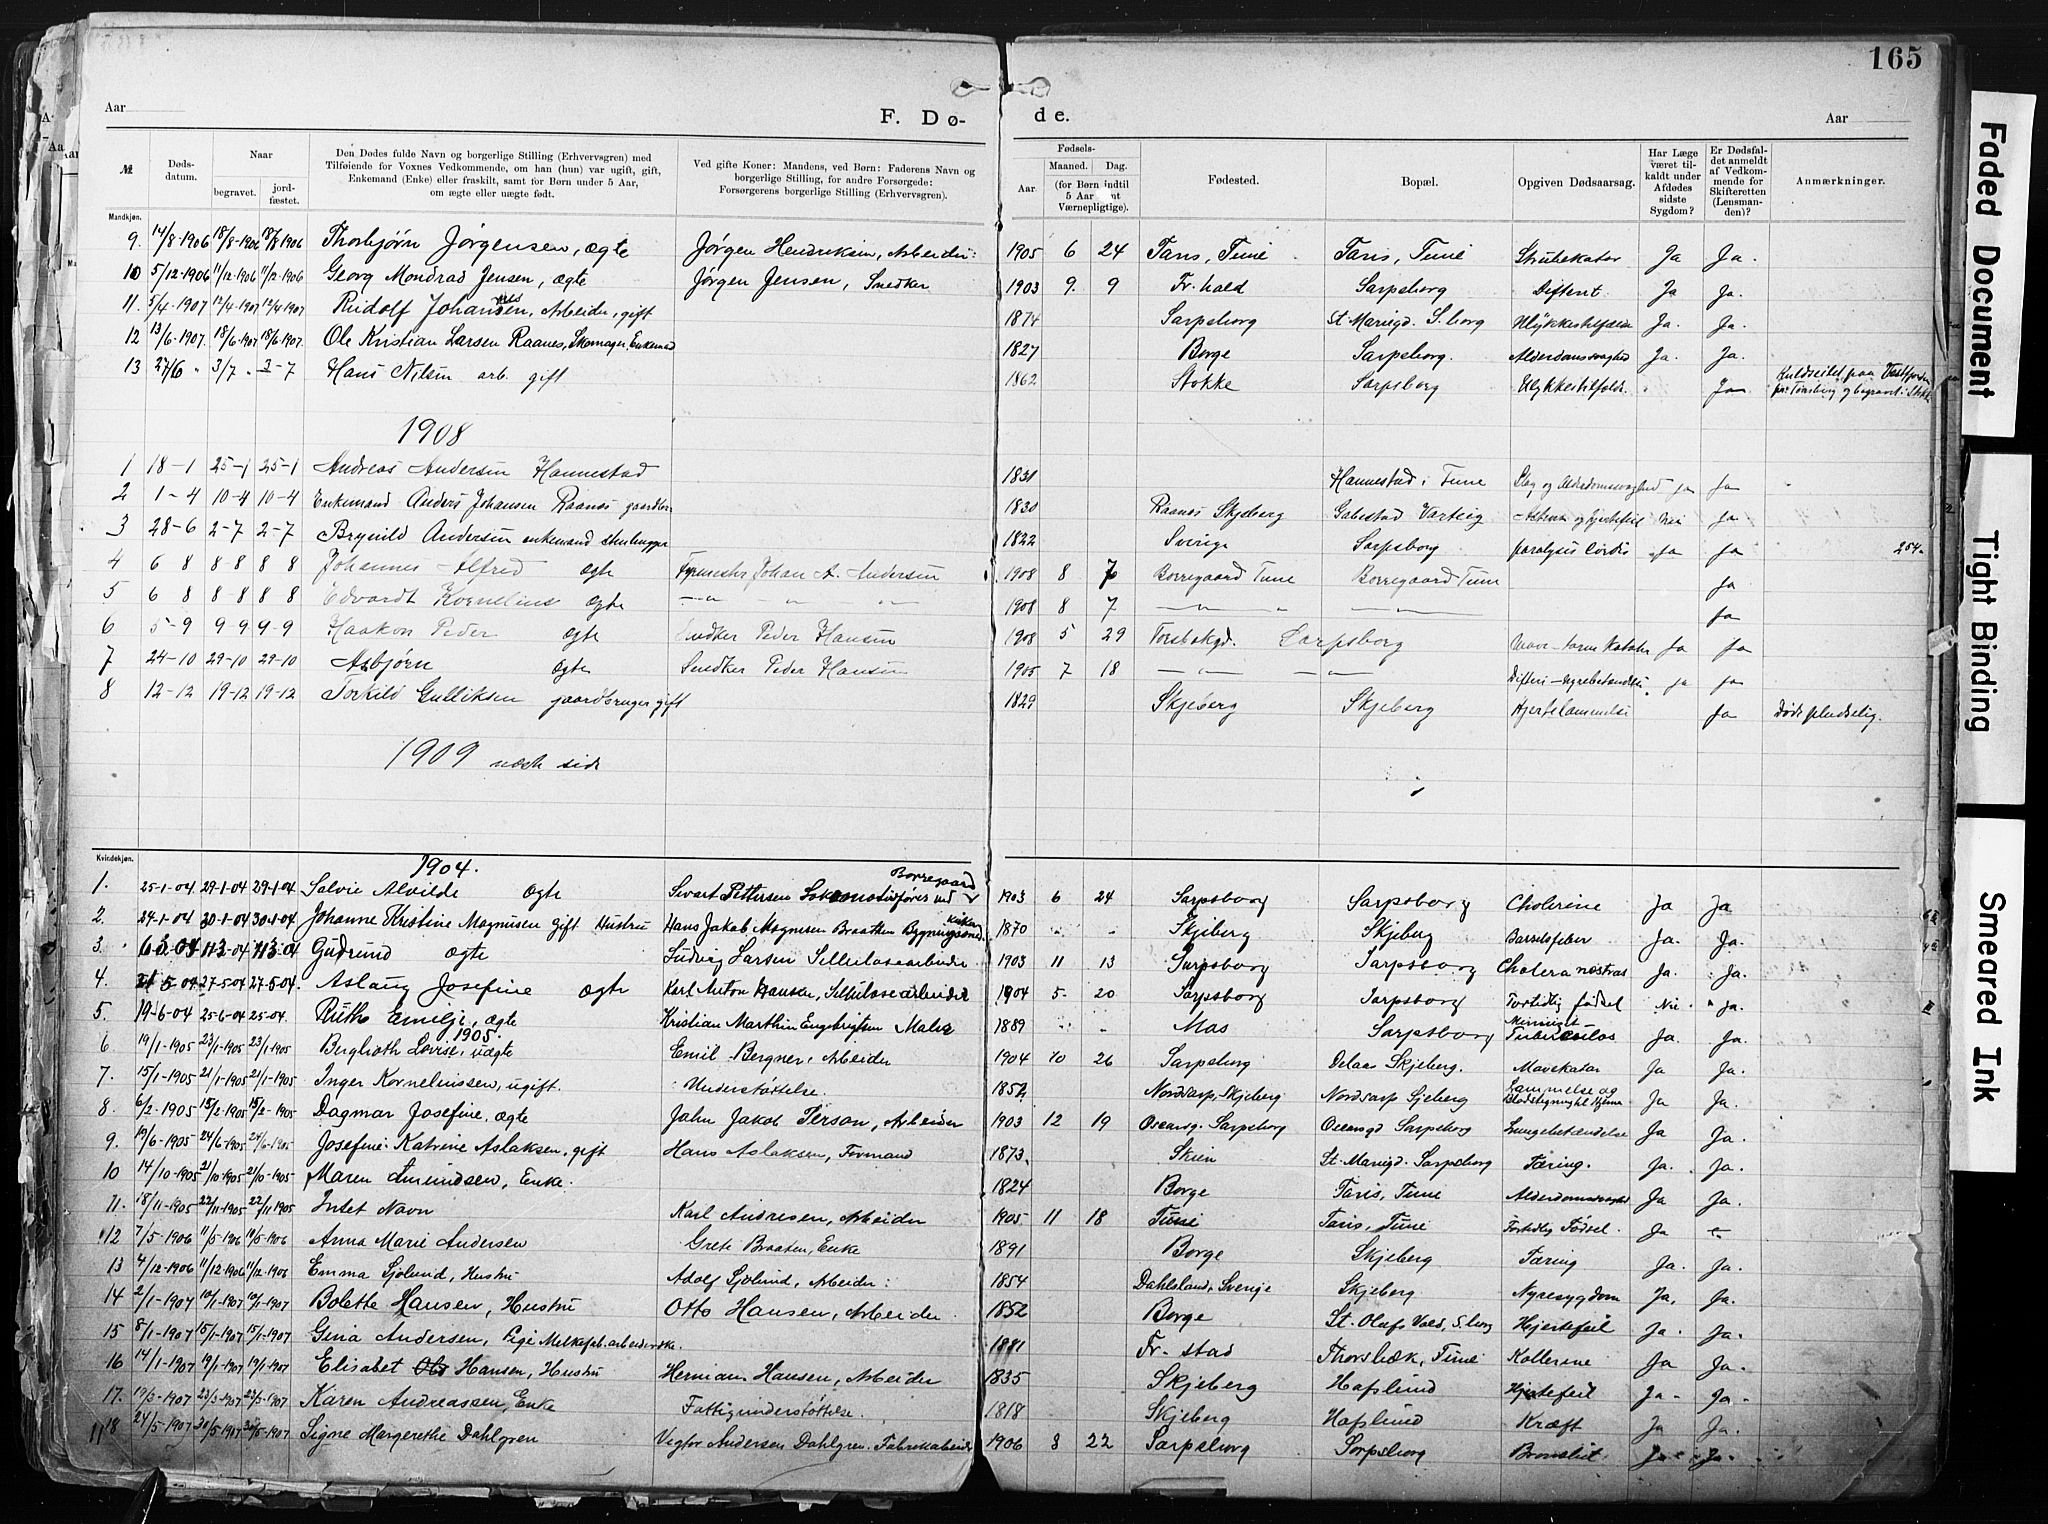 165
Aar
F. Dø-
de.
Aar
№
Døds-
datum.
Naar
begravet.
jord-
fæstet.
Den Dødes fulde Navn og borgerlige Stilling (Erhvervsgren) med
Tilføiende for Voxnes Vedkommende, om han (hun) var ugift, gift,
Enkemand (Enke) eller fraskilt, samt for Børn under 5 Aar,
om ægte eller uægte født.
Ved gifte Koner: Mandens, ved Børn: Faderens Navn og
borgerlige Stilling, for andre Forsørgede:
Forsørgerens borgerlige Stilling (Erhvervsgren).
Fødsels-
Aar
Maaned.
Dag.
(for Børn indtil
5 Aar
Værnepligtige).
Fødested.
Bopæl.
Opgiven Dødsaarsag.
Har Læge
været til-
kaldt under
Afdødes
sidste
Sygdom?
Er Dødsfal-
det anmeldt
af Vedkom-
mende for
Skifteretten
(Lensman-
den)?
Anmærkninger.
Mandkjøn.
9. 14/8-1906 18/8-1906 18/8 1906 Thorbjørn Jørgensen, ægte Jørgen Hendriksen, Arbeider: 1905 6 24 Taris, Tune Taris, Tune Strubekatar Ja Ja.
10 5/12-1906 11/12-1906 11/12-1906 Georg Mondrad Jensen, ægte Jørgen Jensen, Snedker 1903 9. 9 Fr.hald Sarpsborg Difterit. Ja Ja.
11. 5/4-1907 12/4-1907 12/4 1907 Rudolf Johansen, Arbeider, gift 1874 Sarpsborg St. Mariegd. S.borg Ulykkestilfælde Ja. Ja.
12 13/6-1907. 18/6-1907 18/6 1907. Ole Kristian Larsen Raanes, Skomager, Enkemand 1827 Borge Sarpsborg. Alderdomssvaghed Ja. Ja.
13 27/6 " 3/7 " 3-7 Hans Nilsen arb. gift 1862 Stokke Sarpsborg Ulykkestilfælde. Ja Kuldseilet paa Vestfjorden
Tønsberg og begravet i Stokke
1908
1 18-1 25-1 25-1 Andreas Andersen Hannestad 1831 Hannestad i Tune Slag og Alderdomssvaghed ja Ja
2 1-4 10-4 10-4 Enkemand Anders Johansen Raanes gaardbr. 1830 Raanes Skjeberg Gabestad Varteig og hjertefeil Nei Ja
3 28-6 2-7 2-7 Brynild Andersen enkemand stenhugger 1822 Sverige Sarpsborg paralysis Cordis Ja Ja 254.
4 6 8 8 8 8 8 Johannes Alfred ægte Johan A. Andersen 1908 8 7 Borregaard Tune Borregaard Tune Ja
5 6 8 8-8 8 8 Edvardt Kornelius ægte —"— " " 1908 8 7 —"— " —"— Ja
6 5-9 9 9 9-9 Haakon Peder ægte Snedker Peder Hansen 1908 5 29 Torsbekgd. Sarpsborg Mave-tarm Katahr Ja Ja
7 24-10 29-10 29-10 Asbjørn ægte Snedker Peder Hansen 1905 7 18 —"— —"— Difteri - Nyrebetændelse ja Ja
8 12-12 19-12 19-12 Torkild Gulliksen gaardbruger gift 1829 Skjeberg Skjeberg Hjertelammelse Ja Døde pludselig.
1909 næste side
Kvindekjøn.
1904.
1. 25-1-04. 29-1-04 29-1-04 Solvie Alvilde ægte Sivart Pettersen Borregaard 1903 6 24 Sarpsborg Sarpsborg Cholerine Ja Ja
2. 24-1-04 30-1-04 30-1-04 Johanne Kristine Magnusen gift Hustru Hans Jakob Magnusen Braathen Bygningssned 1870 Skjeberg Skjeberg Barselsfeber Ja. Ja.
3. 6 3-04 11-3-04 11-3-04 Gudrund ægte Ludvig Larsen Sellulosearbeider 1903 11 13 Sarpsborg Sarpsborg Cholera nostras Ja. Ja.
4. 21 5-04 27-5-04 27-5-04. Aslaug Josefine ægte Karl Anton Hansen, Sellulosearbeider 1904 5- 20 Sarpsborg Sarpsborg Fortidlig fødsel Nei Ja.
5. 19-6-04 25-6-04 25-04. Ruth Emilje, ægte Kristian Marthin Engebrigtsen Maler 1889 Mos Sarpsborg Miningit
Tuberculos Ja. Ja.
1905.
6 19/1-1905 23/1-1905 23/1-1905 Bergljoth Lovise, uægte Emil Bergner, Arbeider 1904 10 26 Sarpsborg Delaas Skjeberg. Mavekatar Ja Ja.
7. 15/1-1905 21/1-1905 21/1-1905 Inger Kornelinssen, ugift. Understøttelse. 1852 Nordsarp, Skjeberg Nordsarp Sjeberg Lammelse og
Ja Ja.
8. 6/2-1905 15/2-1905 15/2-1905 Dagmar Josefine, ægte John Jakob Person, Arbeider 1903 12 19 Oscarsg. Sarpsborg Oscarsgd Sarpsborg Lungebetændelse Ja Ja.
9. 19/6-1905 24/6-1905 24/6-1905 Josefine Katrine Aslaksen, gift Hans Aslaksen, Formand 1873. Skien St. Mariegd. Sarpsborg Tæring. Ja. Ja.
10 14/10-1905 21/10-1905 21/10-1905 Maren Amundsen, Enke. 1824 Borge Taris, Tune Alderdomssvaghed Ja Ja.
11. 18/11-1905 22/11-1905 22/11 1905 Intet Navn Karl Andresen, Arbeider 1905 11 18 Tune Taris, Tune Fortidlig Fødsel. Ja
12 7/5-1906 11/5-1906 11/5-1906 Anna Marie Andersen Grete Braaten, Enke 1891 Borge Skjeberg Tæring Ja. Ja.
13 4/12-1906 11/12 1906 11/12-1906 Emma Sjølund, Hustru Adolf Sjølund, Arbeider: 1854 Dahlsland, Sverige Skjeberg Nyresygdom Ja, Ja.
14 2/1-1907 10/1-1907 10/1-1907 Bolette Hansen, Hustru Otto Hansen, Arbeider 1852 Borge St. Olafs Vold, S.borg Hjertefeil Ja. Ja.
15 8/1-1907 15/1-1907 15/1-1907 Gina Andersen, Pige Melkefab. arbeiderske. 1881 Fr-stad Thorsbæk, Tune Kollerine Ja Ja.
16 14/1-1907 19/1-1907 19/1-1907 Elisabet Hansen, Hustru Herman Hansen, Arbeider 1835 Skjeberg Hafslund Hjertefeil Ja. Ja.
17. 19/3-1907 23/3-1907 23/3-1907 Karen Andreassen, Enke Fattigunderstøttelse. 1818 Skjeberg Hafslund Kræft Ja Ja.
18 24/5-1907 30/5-1907 30/5-1907 Signe Margrethe Dahlgren Vigtor Andersen Dahlgren. Fabrikabeider 1906 8 22 Sarpsborg Sarpsborg Bronkit. Ja Ja.
Faded Document
Tight Binding
Smeared Ink